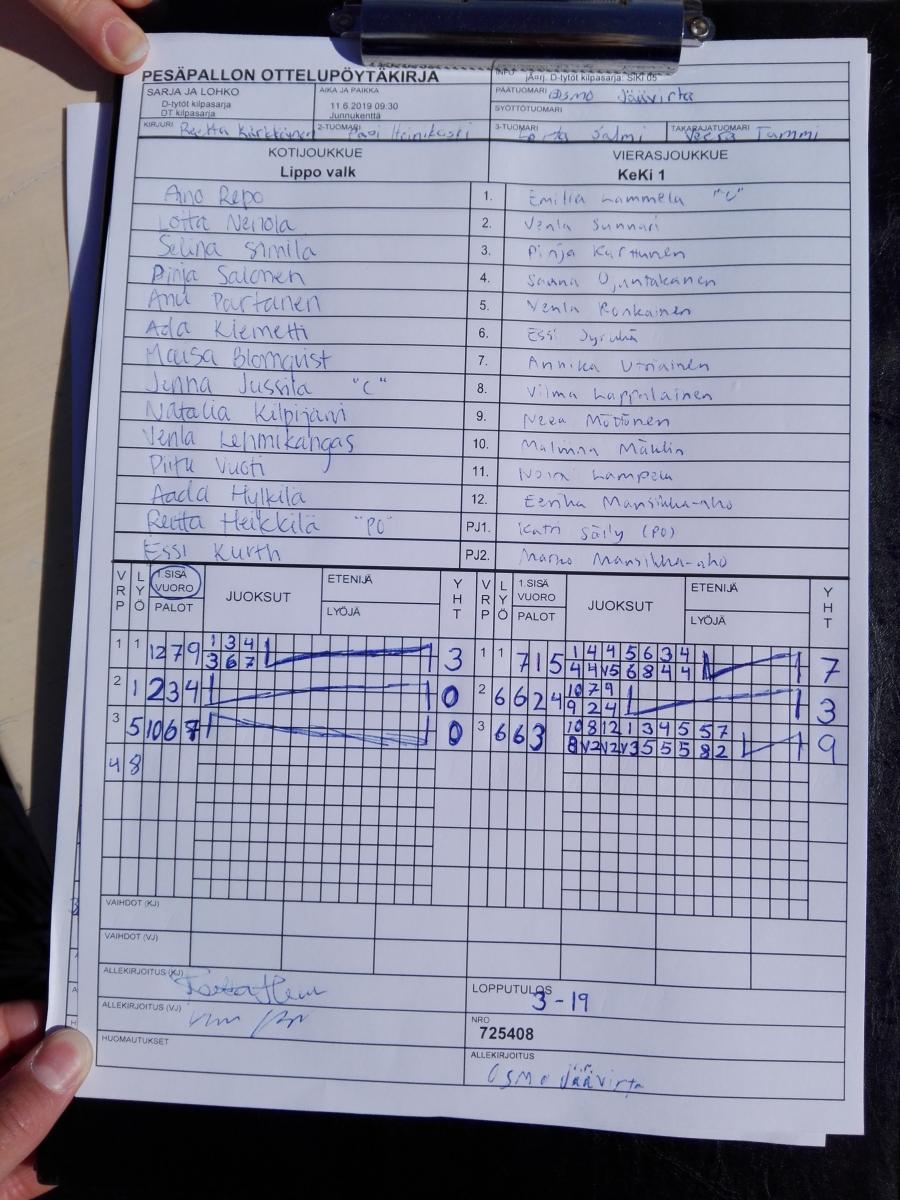 PESÄPALLON OTTELUPÖYTÄKIRJA
INFO jÄorj. D-tytöt kilpasarja: SiKi 05
SARJA JA LOHKO
D-tytöt kilpasarja
DT kilpasarja
AIKA JA PAIKKA
11.6.2019 09:30
Junnukenttä
PÄÄTUOMARI Osmo Jäävirta
SYÖTTÖTUOMARI
KIRJURI Reetta Kärkkäinen
2-TUOMARI Pasi Heinikoski
3-TUOMARI Salmi
TAKARAJATUOMARI Veera Tammi
KOTIJOUKKUE
Lippo valk
VIERASJOUKKUE
KeKi 1
Aino Repo 1. Emilia Lammela "C"
Lotta Nenola 2. Venla Sunnari
Selina Simila 3. Pinja Karttunen
Pinja Salonen 4. Sanna Ojuntakanen
Anu Partanen 5. Venla Ronkainen
Ada Kiemetti 6. Essi
Maisa Blomqvist 7. Annika
Jenna Jussila "C" 8. Vilma Lappalainen
Natalia Kilpijärvi 9. Neea Möttönen
Venla Lehmikangas 10. Malmina
Piitu Vuoti 11. Noora Lampela
Aada Hylkilä 12. Eerika Mansikka-aho
Reetta Heikkilä "PO" PJ1. Katri Säily (PO)
Essi Kurth PJ2. Marko Mansikka-aho
VRP LYÖ 1.SISÄ VUORO PALOT JUOKSUT ETENIJÄ LYÖJÄ YHT VRP LYÖ 1.SISÄ VUORO PALOT JUOKSUT ETENIJÄ LYÖJÄ YHT
1 1 12 7 9 1 3 4 3 1 1 7 1 5 1 4 4 5 6 3 4 7
3 6 7 4 4 V5 6 8 4 4
2 1 2 3 4 0 2 6 6 2 4 10 7 9 3
9 2 4
3 5 10 6 7 0 3 6 6 3 10 8 12 1 3 4 5 5 7 9
8 V2 V2 V3 5 5 5 8 2
4 8
VAIHDOT (KJ)
VAIHDOT (VJ)
ALLEKIRJOITUS (KJ)
ALLEKIRJOITUS (VJ)
HUOMAUTUKSET
LOPPUTULOS
3-19
NRO
725408
ALLEKIRJOITUS
Osmo Jäävirta